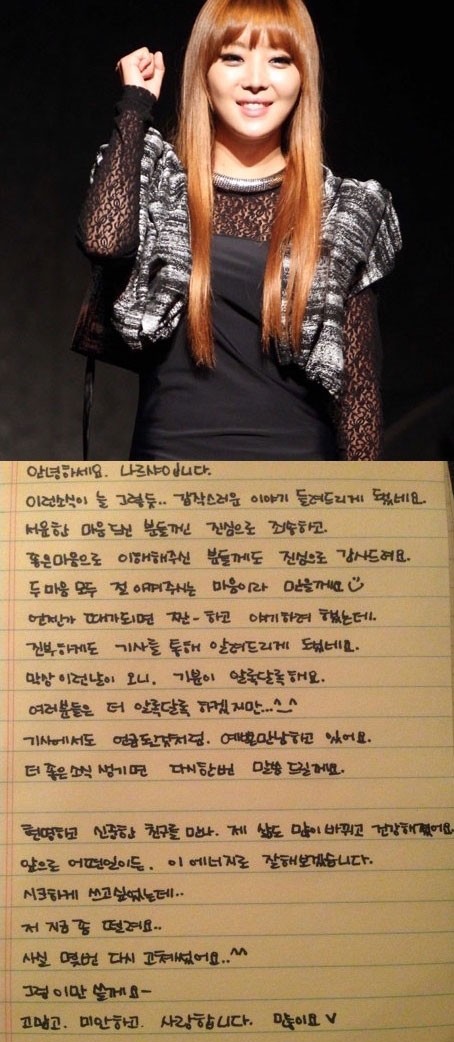 안녕하세요. 나르샤입니다.
이런소식이 늘 그렇듯.. 갑작스러운 이야기 들려드리게 됐네요.
서운한 마음 드신 분들껜 진심으로 죄송하고.
좋은마음으로 이해해주신 분들께도 진심으로 감사드려요.
두 마음 모두 절 아껴주시는 마음이라 믿을께요
언젠가 때가되면 짠-하고 얘기하려 했는데.
진부하게도 기사를 통해 알려드리게 됐네요.
막상 이런날이 오니. 기분이 알록달록해요.
여러분들은 더 알록달록 하겠지만...^-^
기사에서도 언급된것처럼. 예쁜만남하고 있어요.
더 좋은소식 생기면 다시한번 말씀 드릴께요.
현명하고 신중한 친구를 만나. 제 삶도 많이 바뀌고 건강해졌어요.
앞으로 어떤일이든. 이 에너지로 잘해보겠습니다.
시크하게 쓰고싶었는데..
저 지금 좀 떨려요..
사실 몇번 다시 고쳐썼어요..^^
그럼 이만 쓸께요-
고맙고. 미안하고. 사랑합니다. 민눙이요 V